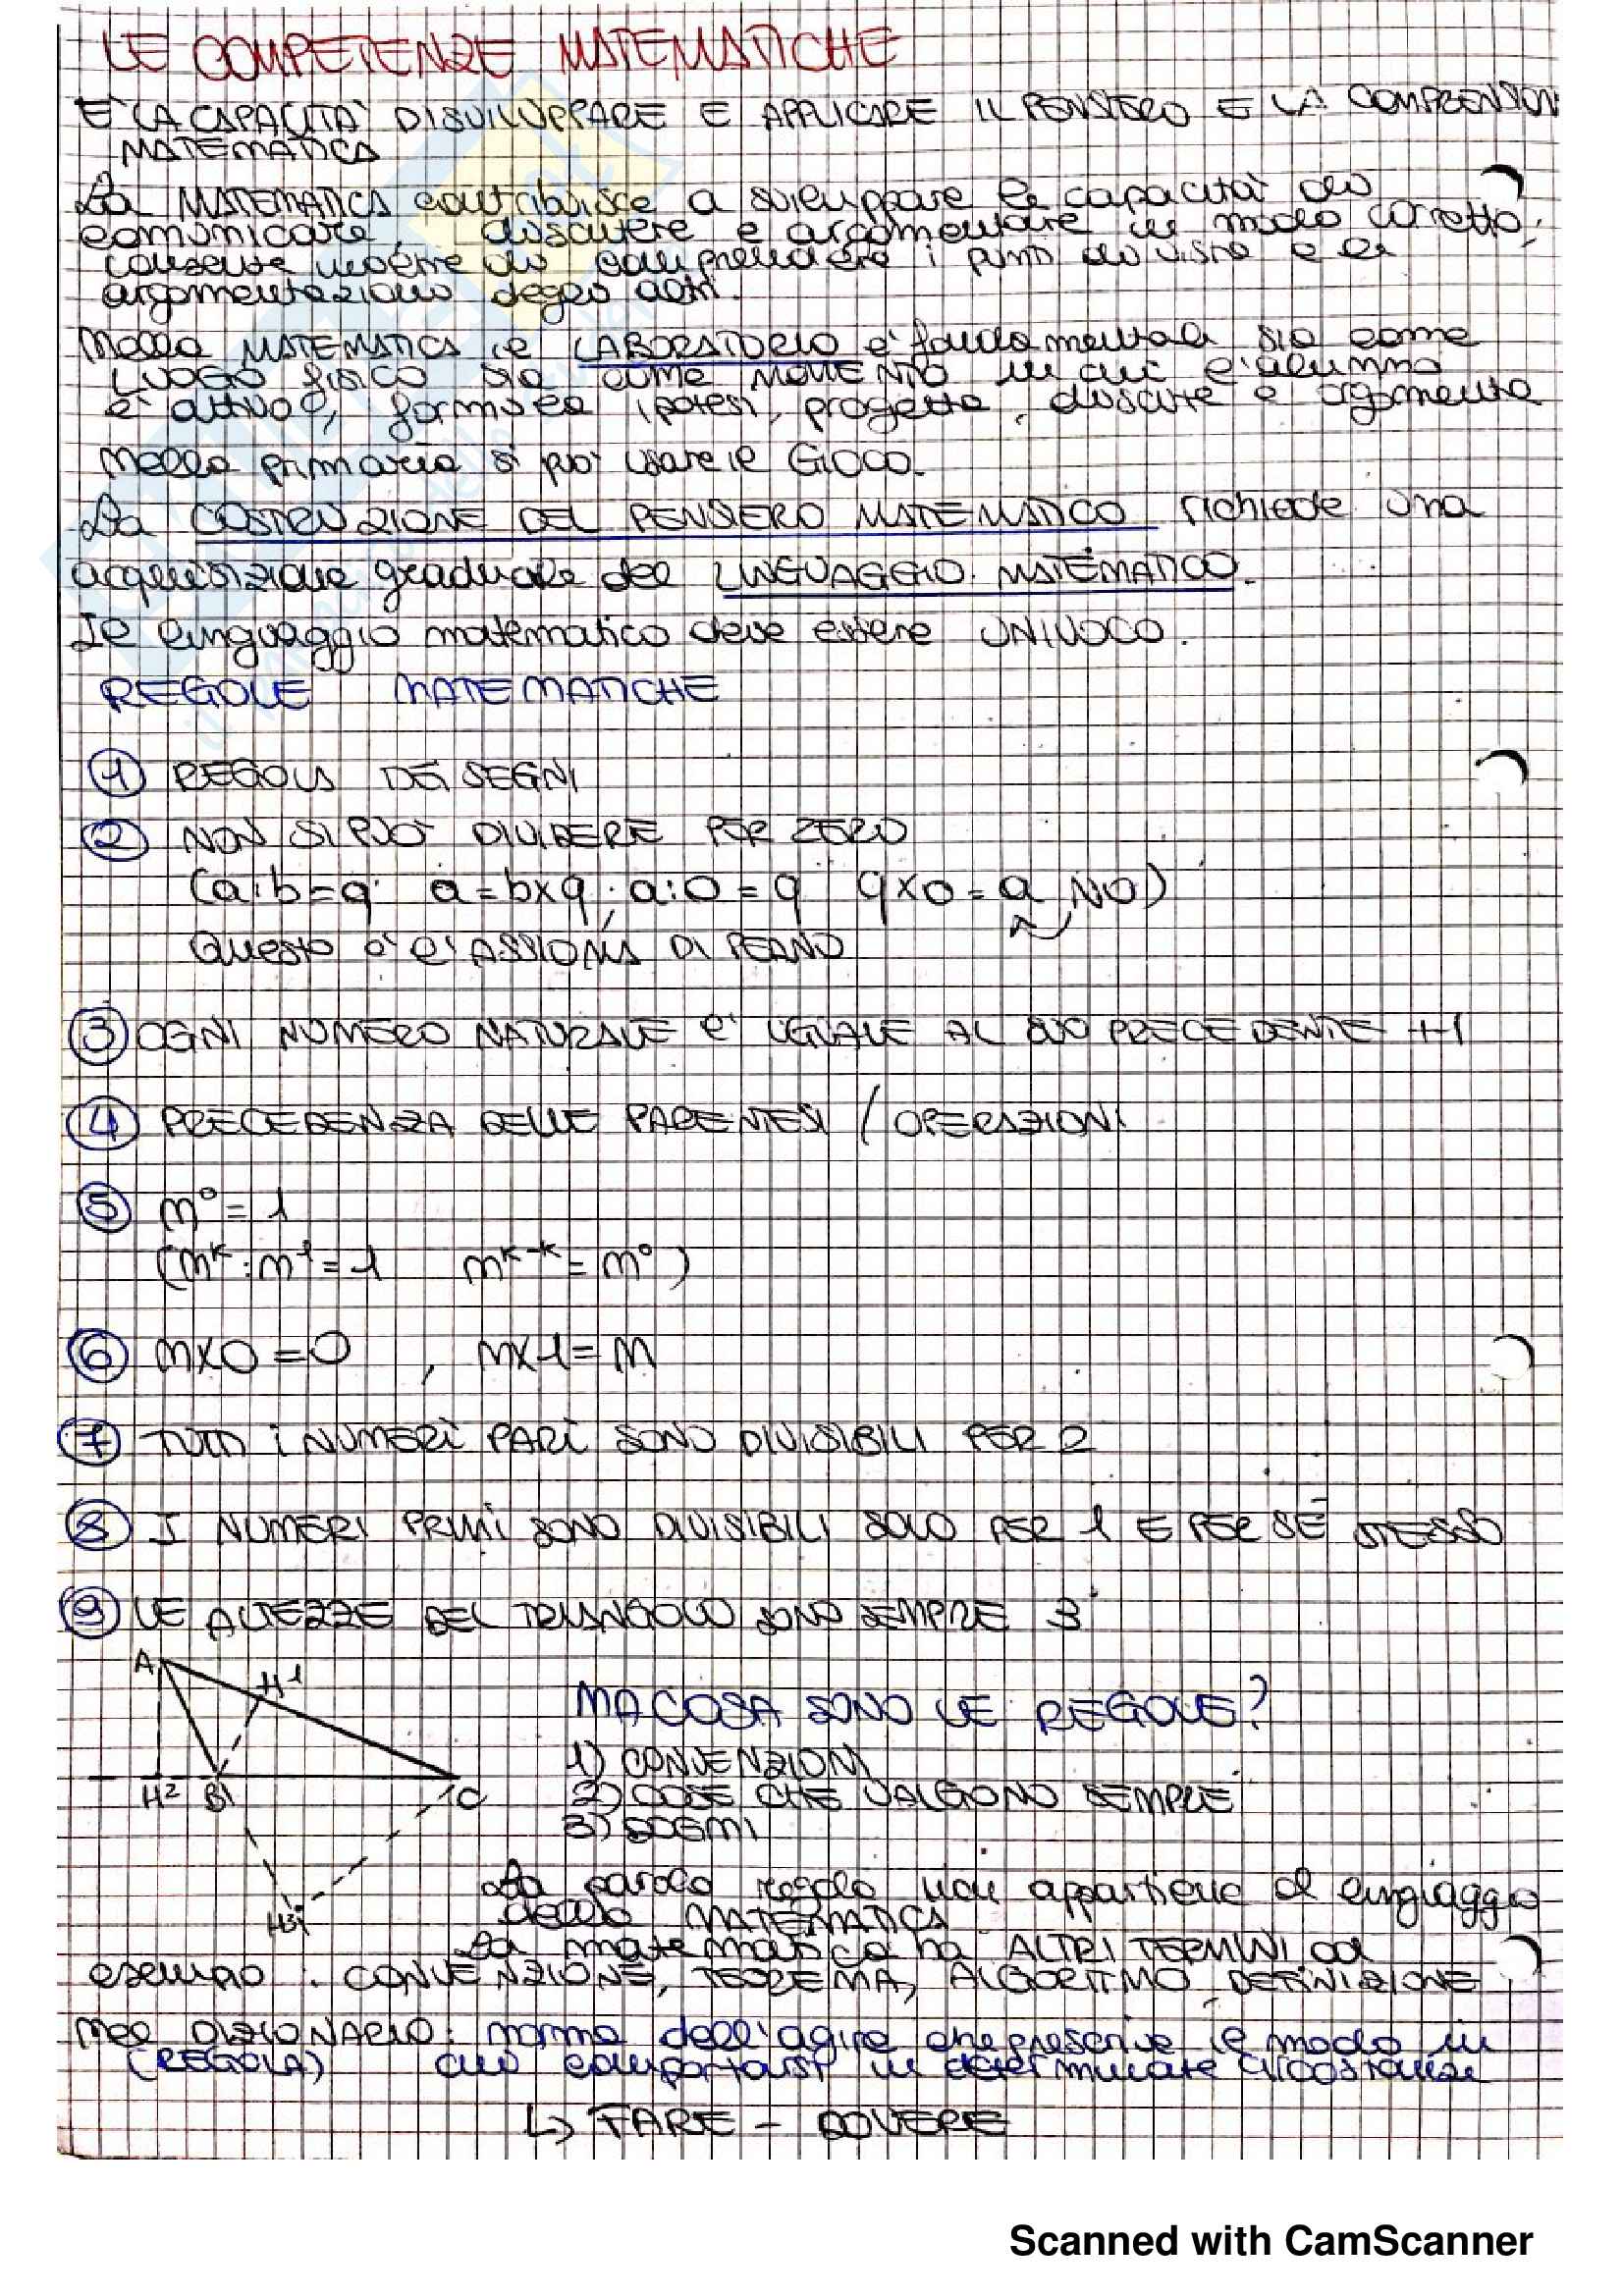 LE COMPETENZE MATEMATICHE
E' LA CAPACITA' DI SVILUPPARE E APPLICARE IL PENSIERO E LA COMPRENSION
MATEMATICA
La MATEMATICA contribuisce a sviluppare le capacità di
comunicare, discutere e argomentare in modo corretto,
consente inoltre di comprendere i punti di vista e le
argomentazioni degli altri.
Nella MATEMATICA il LABORATORIO è fondamentale sia come
LUOGO fisico sia come MOMENTO in cui l'alunno
è attivo, formula ipotesi, progetta, discute e argomenta
Nella primaria si può usare il GIOCO.
La COSTRUZIONE DEL PENSIERO MATEMATICO richiede una
acquisizione graduale del LINGUAGGIO MATEMATICO.
Il linguaggio matematico deve essere UNIVOCO.
REGOLE MATEMATICHE
1 REGOLA DEI SEGNI
2 NON SI PUO' DIVIDERE PER ZERO
(a:b=q a=bxq; a:0=q qx0=a NO)
Questo è l'ASSIOMA DI PEANO
3 OGNI NUMERO NATURALE E' UGUALE AL SUO PRECEDENTE +1
4 PRECEDENZA DELLE PARENTESI / OPERAZIONI
5 m⁰=1
(mᵏ:m¹=1 mᵏ⁻ᵏ=m⁰)
6 mx0=0, mx1=m
7 TUTTI i NUMERi PARi SONO DIVISIBILI PER 2
8 I NUMERI PRIMI SONO DIVISIBILI SOLO PER 1 E PER SE' STESSO
9 LE ALTEZZE DEL TRIANGOLO SONO SEMPRE 3
A H1
MA COSA SONO LE REGOLE?
1) CONVENZIONI
H2 B C
2) COSE CHE VALGONO SEMPRE
3) DOGMI
La parola regola non appartiene al linguaggio
H3
della MATEMATICA
La matematica ha ALTRI TERMINI ad
esempio: CONVENZIONE, TEOREMA, ALGORITMO, DEFINIZIONE
Nel DIZIONARIO: norma dell'agire che prescrive il modo in
(REGOLA) cui comportarsi in determinate circostanze
↳ FARE - DOVERE
Scanned with CamScanner